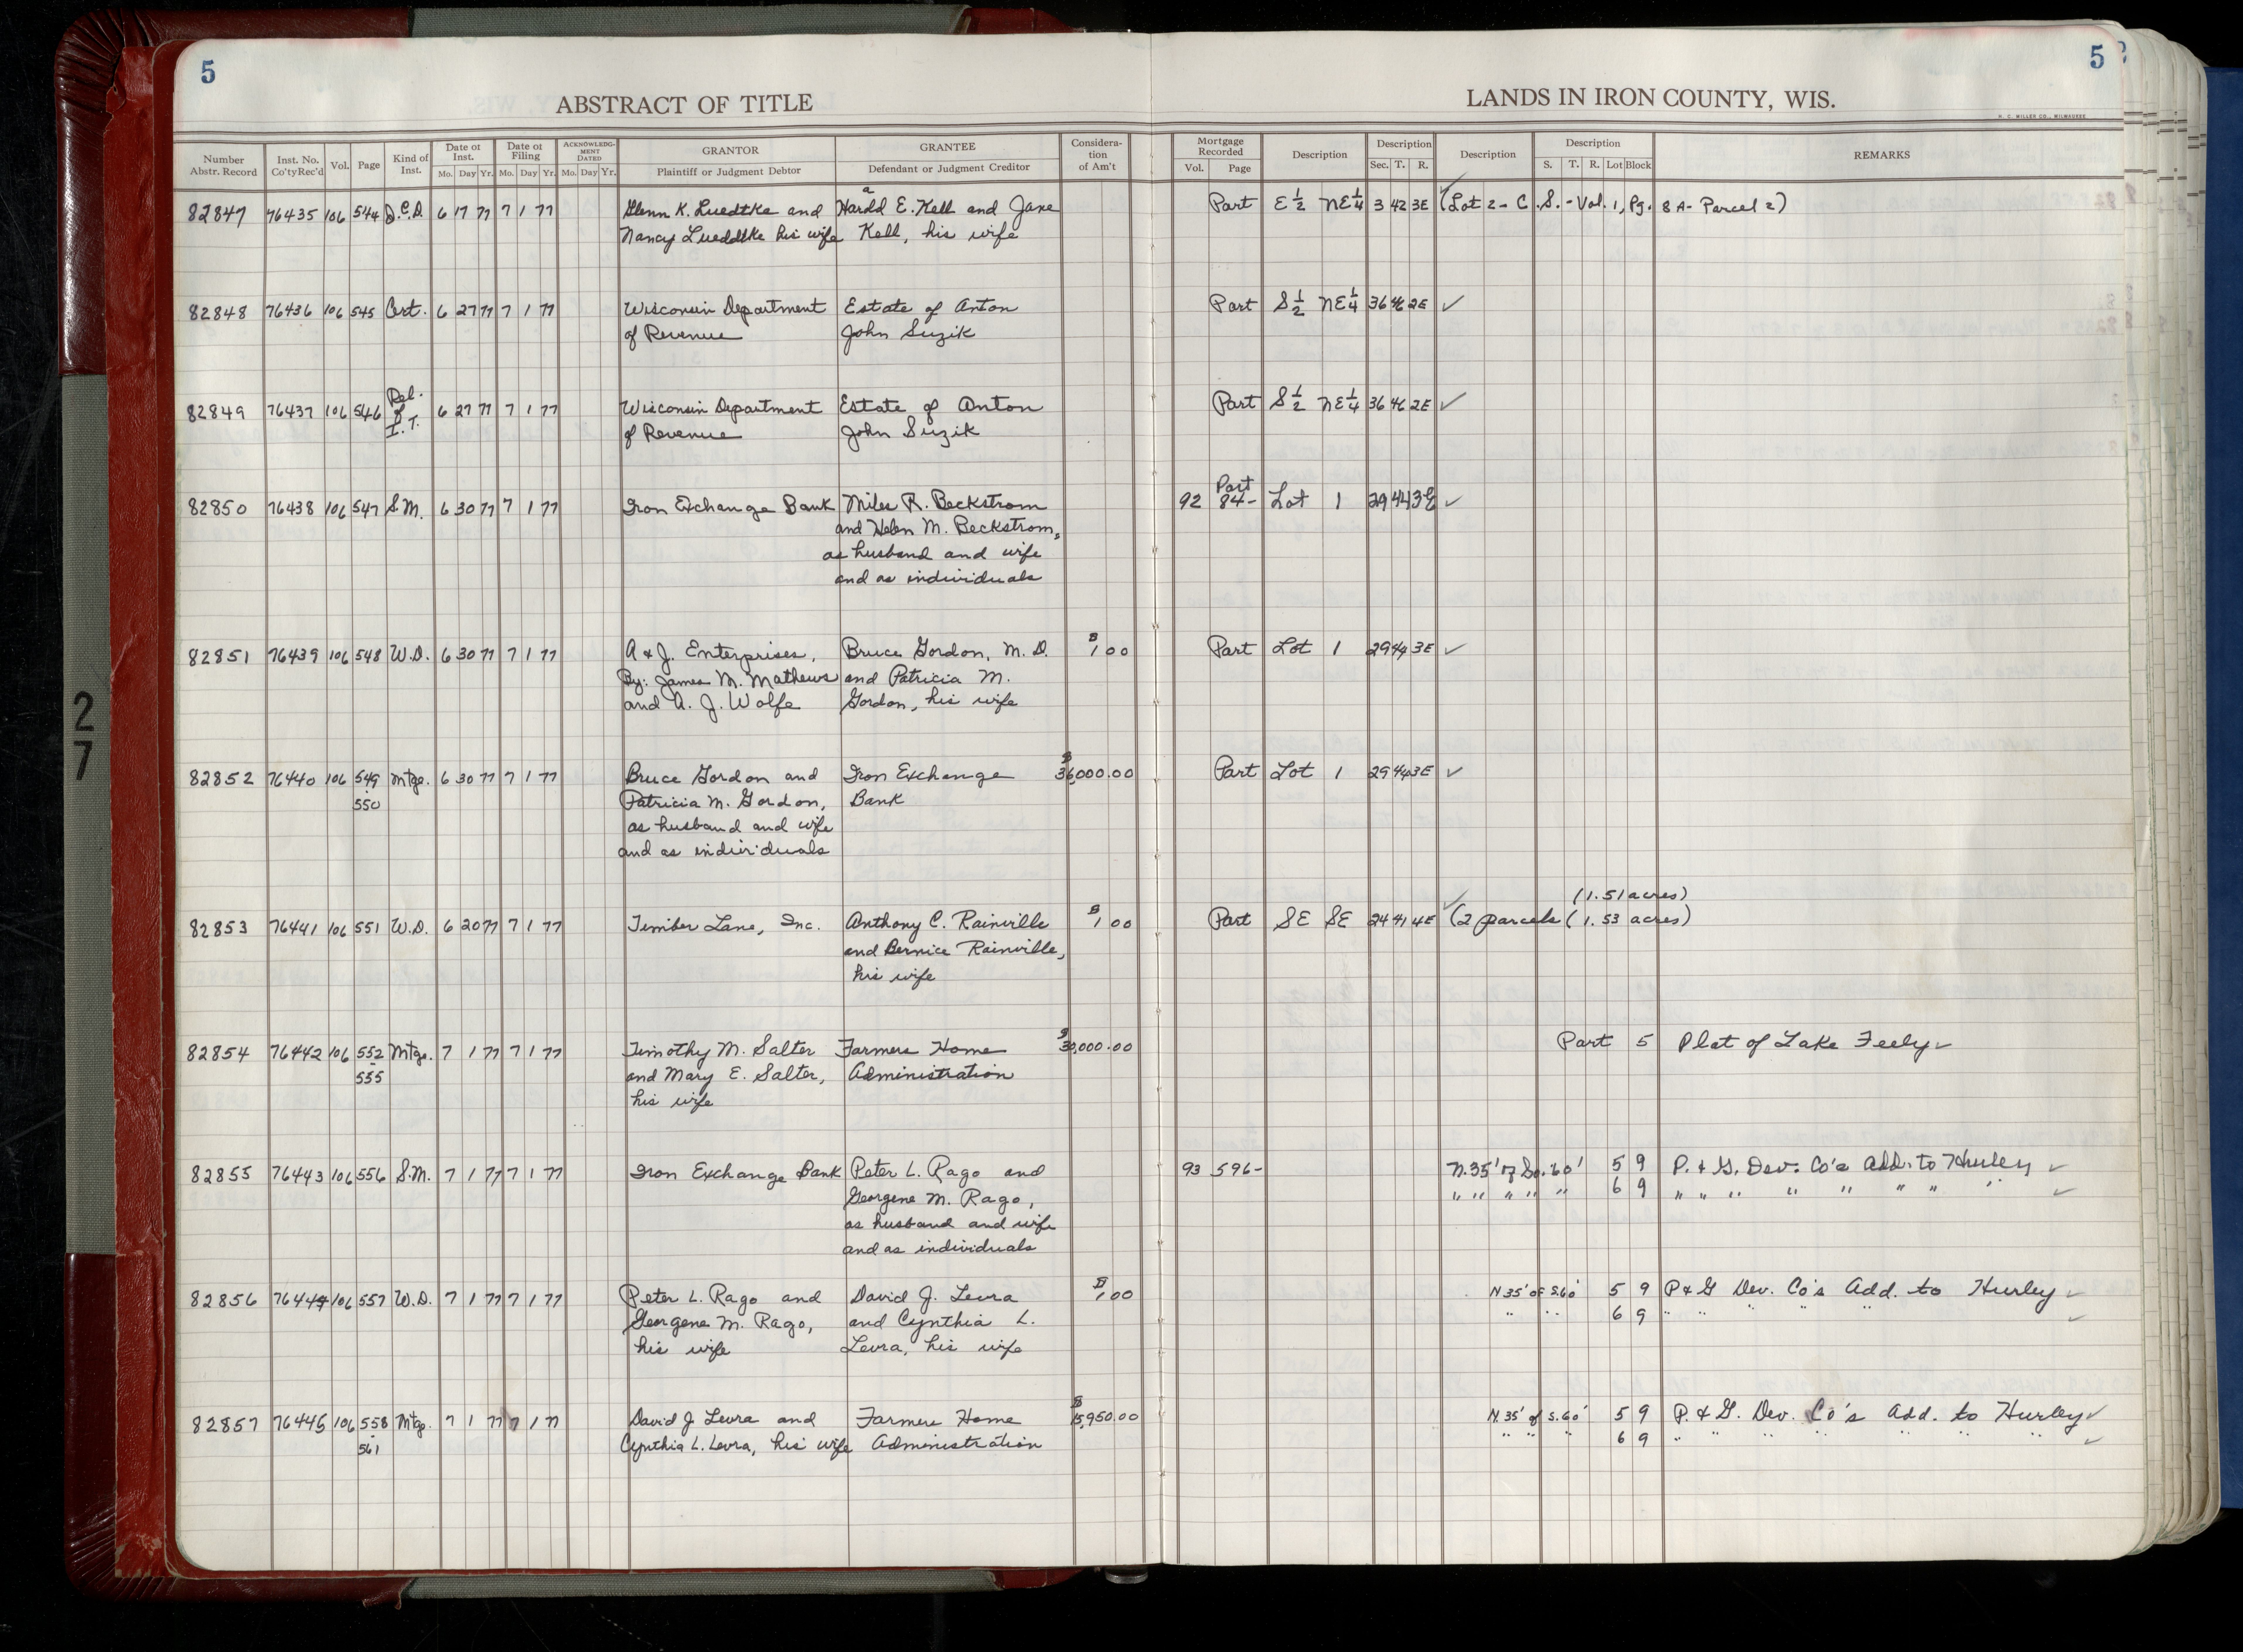 5
5
ABSTRACT OF TITLE
LANDS IN IRON COUNTY, WIS.
H. C. MILLER CO., MILWAUKEE
Number Abstr. Record | Inst. No. Co'ty Rec'd | Vol. | Page | Kind of Inst. | Date of Inst. Mo. Day Yr. | Date of Filing Mo. Day Yr. | ACKNOWLEDGMENT DATED Mo. Day Yr. | GRANTOR Plaintiff or Judgment Debtor | GRANTEE Defendant or Judgment Creditor | Consideration of Am't | Mortgage Recorded Vol. Page | Description | Description Sec. T. R. | Description | Description S. T. R. Lot Block | REMARKS
82847 76435 106 544 6 17 77 7 1 77 Glenn K. Luedtke and Harold E. Kell and Jane Part E 1/2 NE 1/4 3 42 3E ✓ (Lot 2 - C.S. - Vol. 1, Pg. 8A - Parcel 2)
Nancy Lueddtke his wife Kell, his wife
82848 76436 106 545 Cert. 6 27 77 7 1 77 Wisconsin Department Estate of Anton Part S 1/2 NE 1/4 36 46 2E ✓
of Revenue John Suzik
82849 76437 106 546 Rel. of I.T. 6 27 77 7 1 77 Wisconsin Department Estate of Anton Part S 1/2 NE 1/4 36 46 2E ✓
of Revenue John Suzik
82850 76438 106 547 S.M. 6 30 77 7 1 77 Iron Exchange Bank Miles R. Beckstrom 92 84- Part Lot 1 29 44 3E ✓
and Helen M. Beckstrom,
as husband and wife
and as individuals
82851 76439 106 548 W.D. 6 30 77 7 1 77 A & J. Enterprises, Bruce Gordon, M.D. $1.00 Part Lot 1 29 44 3E ✓
By: James M. Mathews and Patricia M.
and A. J. Wolfe Gordon, his wife
82852 76440 106 549-550 Mtge. 6 30 77 7 1 77 Bruce Gordon and Iron Exchange $36,000.00 Part Lot 1 29 44 3E ✓
Patricia M. Gordon, Bank
as husband and wife
and as individuals
(1.51 acres)
82853 76441 106 551 W.D. 6 20 77 7 1 77 Timber Lane, Inc. Anthony C. Rainville $1.00 Part SE SE 24 41 4E ✓ (2 parcels (1.53 acres)
and Bernice Rainville,
his wife
82854 76442 106 552-555 Mtge. 7 1 77 7 1 77 Timothy M. Salter Farmers Home $30,000.00 Part 5 Plat of Lake Feely ✓
and Mary E. Salter, Administration
his wife
82855 76443 106 556 S.M. 7 1 77 7 1 77 Iron Exchange Bank Peter L. Rago and 93 596- N. 35' of So. 60' 5 9 P. & G. Dev. Co's Add. to Hurley ✓
Georgene M. Rago, " " " " " 6 9 " " " " " " " " ✓
as husband and wife
and as individuals
82856 76444 106 557 W.D. 7 1 77 7 1 77 Peter L. Rago and David J. Levra $1.00 N 35' of S. 60' 5 9 P & G Dev. Co's Add. to Hurley ✓
Georgene M. Rago, and Cynthia L. " " 6 9 " " " " ✓
his wife Levra, his wife
82857 76445 106 558-561 Mtge. 7 1 77 7 1 77 David J Levra and Farmers Home $15,950.00 N. 35' of S. 60' 5 9 P. & G. Dev. Co's Add. to Hurley ✓
Cynthia L. Levra, his wife Administration " " " 6 9 " " " " " " " ✓
27